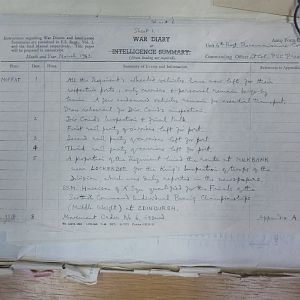 Sheet 1
WAR DIARY
of
INTELLIGENCE SUMMARY.
(Erase heading not required)
Army Form
Instructions regarding War Diaries and Intelligence
Summaries are contained in F.S. Regs., Vol. I.
and the Staff Manual respectively.
prepared in manuscript.
Month and Year March 194
Unit 5th Regt Reconnaissance
Commanding Officer
Place Date Hour Summary of Events and Information References to Appendices
MOFFAT 1 All the Regiment's wheeled vehicles have now left for their
respective ports; only carriers & personnel remain, busy by
train. A few condemned vehicles remain for essential transport.
Dress rehearsal for Div Comd's inspection.
2 Div Comd's inspection & final talk.
First rail party of carriers left for port.
3 Second rail party of carriers left for port.
4 Third rail party of carriers left for port.
5 A proportion of the Regiment lined the route at
near LOCKERBIE for the King's inspection of troops of the
Division which was duly reported in the newspapers.
Harrison of A Sqn qualified for the Finals of the
Scottish Command Individual Boxing Championships
(Middle Weight) at EDINBURGH.
8 Movement Order No 6 issued. Appendix A